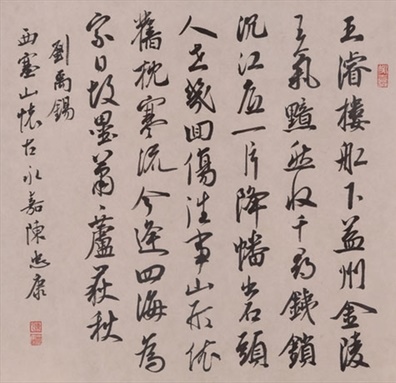 王濬樓船下益州金陵
王氣黯然收千尋銕鎖
沉江底一片降幡出石頭
人世幾回傷往事山形依
舊枕寒流今逢四海為
家日故壘蕭〻蘆荻秋
劉禹錫
西塞山懷古永嘉陳忠康